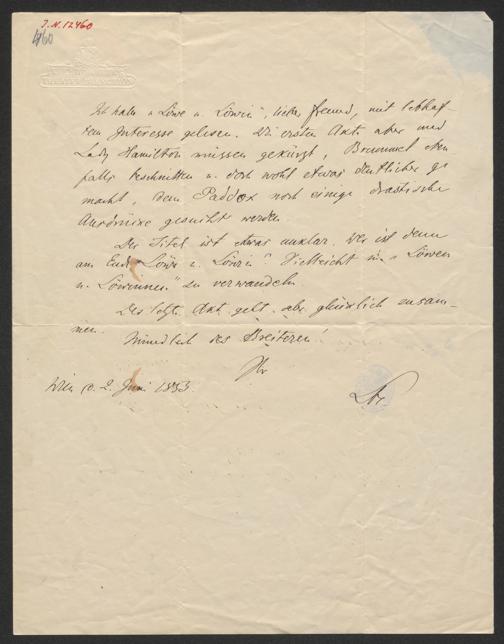 J.N. 12460
460
Ich habe „Löwe u. Löwin“, lieber Freund, mit lebhaf-
tem Interesse gelesen. Die ersten Akte aber und
Lady Hamilton müssen gekürzt, Brummel eben
falls beschnitten u. doch wohl etwas deutlicher ge
macht, dem Paddox noch einige drastische
Ausdrücke gesucht werden
Der Titel ist etwas unklar. Wer ist denn
am Ende Löwe u. Löwin? Vielleicht in „Löwen
u. Löwinnen“ zu verwandeln
Der letzte Akt geht aber glücklich zusam-
men.
Mündlich des Breiteren!
Ihr
Wien d. 2. Juni 1853